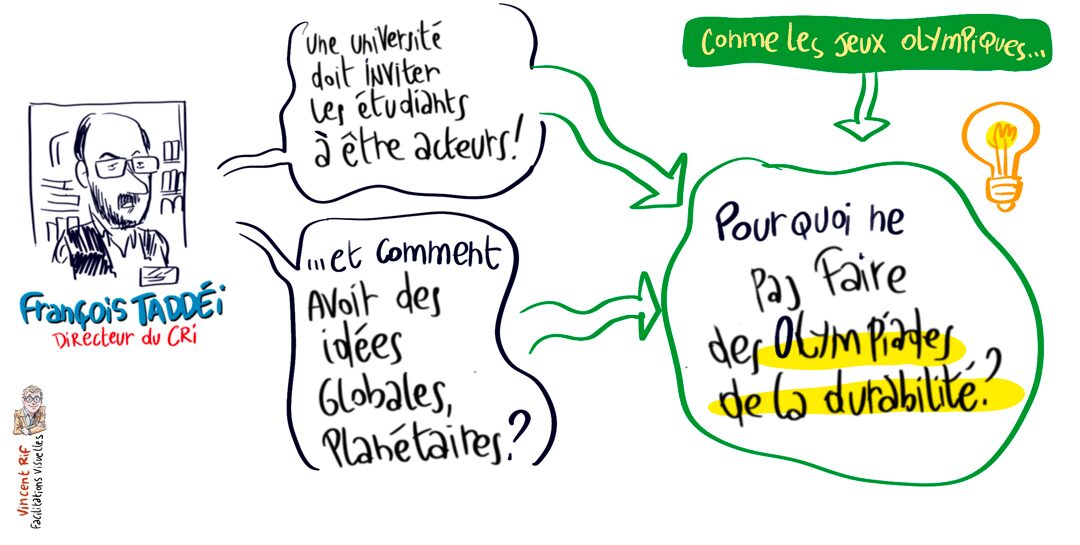 une université
doit inviter
les étudiants
à être acteurs!
...et comment
Avoir des
idées
Globales,
Planétaires?
François TADDÉi
Directeur du CRi
Comme les jeux olympiques...
Pourquoi ne
pas faire
des Olympiades
de la durabilité?
Vincent Rif
Facilitations Visuelles